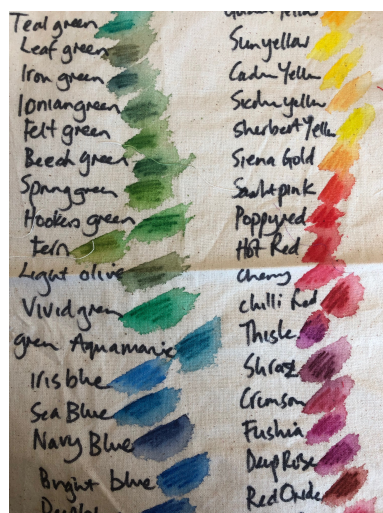 Teal green
Leaf green
Iron green
Ionian green
Felt green
Beech green
Spring green
Hookers green
Fern
Light olive
Vivid green
green Aquamarine
Iris blue
Sea Blue
Navy Blue
Bright blue
Sun yellow
Cadm Yellow
Sherbert Yellow
Siena Gold
Poppy red
Hot Red
Cherry
Chilli Red
Thistle
Crimson
Fushia
Deep Rose
Red Oxide